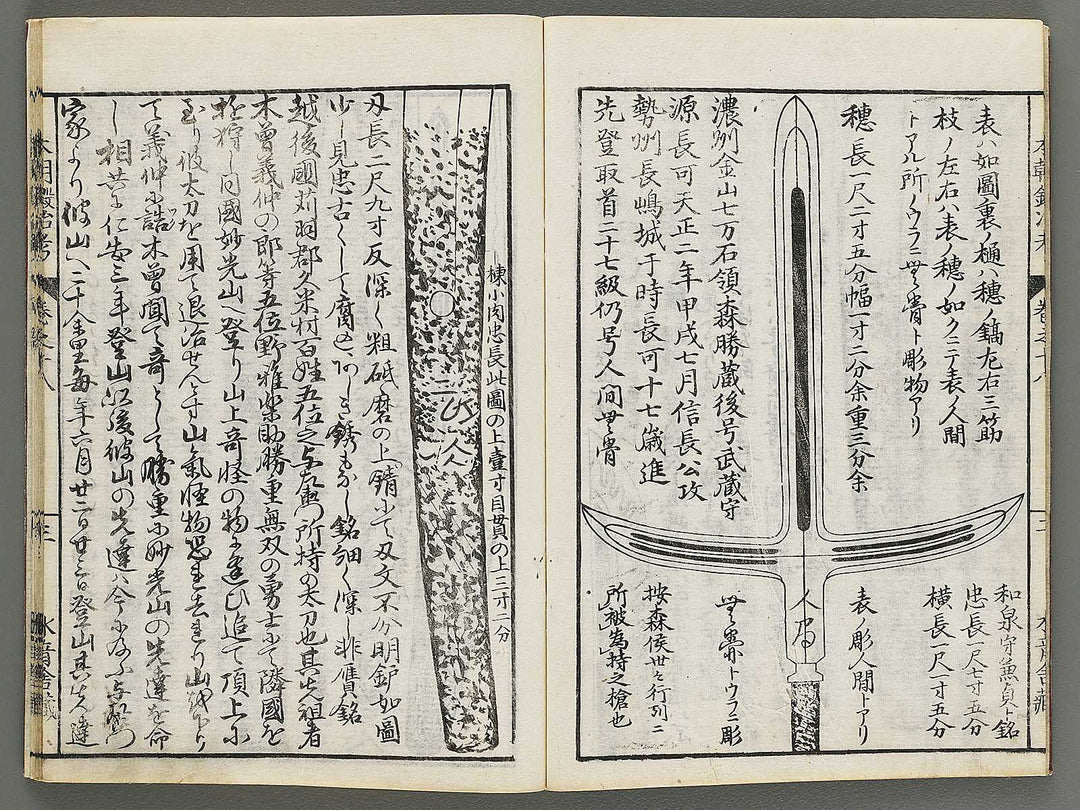 表ハ如圖裏ノ樋ハ穂ノ鎬左右三筋
枝ノ左右ハ表ノ穂ノ如クニテ表ノ人間
トアル所ノウラニ無骨ト彫物アリ
穂長一尺二寸五分幅一寸二分余重三分余
濃州金山七万石領森勝蔵後号武蔵守
源長可天正二年甲戌七月信長公攻
勢州長嶋城于時長可十七歳進
先登取首二十七級仍号人間無骨
和泉守兼貞ト銘
忠長一尺七寸五分
横長一尺一寸五分
表ノ彫人間トアリ
人間
無骨トウラニ彫
按森侯世々行列ニ
所被為持之槍也
棟小肉忠長此圖の上壹寸目貫の上三寸二分
刃長二尺九寸反深く粗砥磨の上錆にて刃文不分明鈩如圖
少し見忠古くして腐込銘細く深し非贋銘
越後國苅羽郡久米村百姓五位之与左衛門所持の太刀也其先祖者
木曽義仲の郎等五位野雅楽助勝重無双の勇士にて隣國を
狩し同國妙光山へ登り山上奇怪の物に逢ひ追て頂上に
至り彼太刀を用て退治せんす山氣怪物恐れ去れり山を下り
て義仲に語木曽聞て奇として勝重に妙光山の先達を命
し相共に仁安三年登山以後彼山の先達ハ今に及ふ与左衛門
家より彼山へ二十余里毎年六月廿二日廿三日登山其先達
水音舎蔵